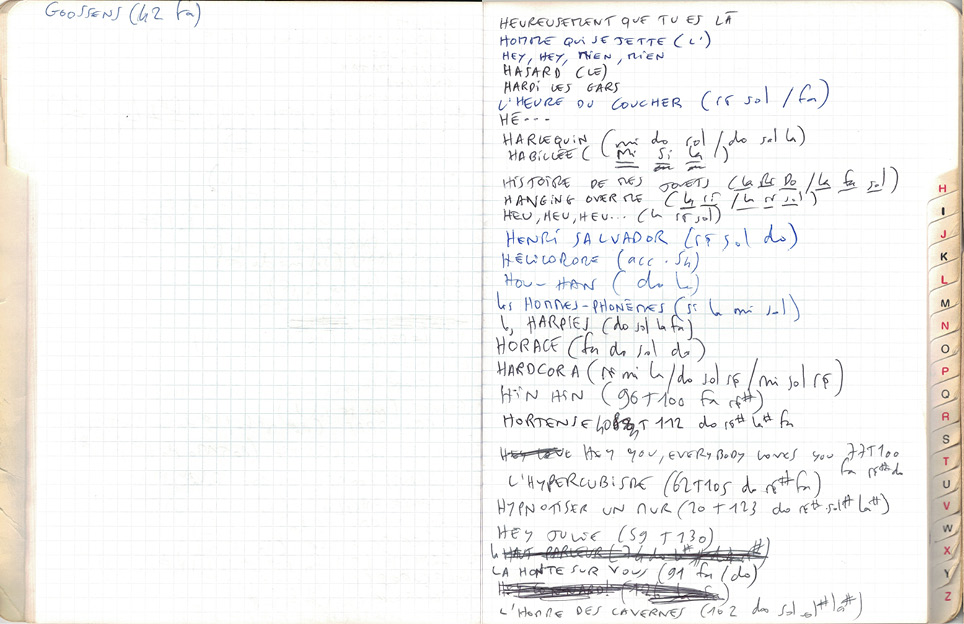 GOOSSENS (42 fa)
HEUREUSEMENT QUE TU ES LÀ
HOMME QUI SE JETTE (L')
HEY, HEY, MIEN, MIEN
HASARD (LE)
HARDI LES GARS
L'HEURE DU COUCHER (ré sol / fa)
HÉ---
HARLEQUIN (mi do sol / do sol la)
HABILLÉE (Mi Si la /)
HISTOIRE DE MES JOUETS (la Ré Do / la fa sol)
HANGING OVER ME (la ré / la ré sol)
HEU, HEU, HEU... (la ré sol)
HENRI SALVADOR (ré sol do)
HÉLICORDRE (acc.
HOU-HAN (do la)
les HOMMES-PHONÈMES (si la mi sol)
les HARPIES (do sol la fa)
HORACE (fa do sol do)
HARDCORA (ré mi la / do sol ré / mi sol ré)
HIN HIN (96 T 100 fa ré#)
HORTENSE T 112 do ré# la# fa
HEY YOU, EVERYBODY LOVES YOU 77T100
fa ré# do
L'HYPERCUBISME (62T105 do ré# fa)
HYPNOTISER UN MUR (20 T 123 do ré# sol# la#)
HEY JULIE (59 T 130)
HAUT PARLEUR
LA HONTE SUR VOUS (91 fa / do)
L'HOMME DES CAVERNES (102 do sol# la#)
H
I
J
K
L
M
N
O
P
Q
R
S
T
U
V
W
X
Y
Z